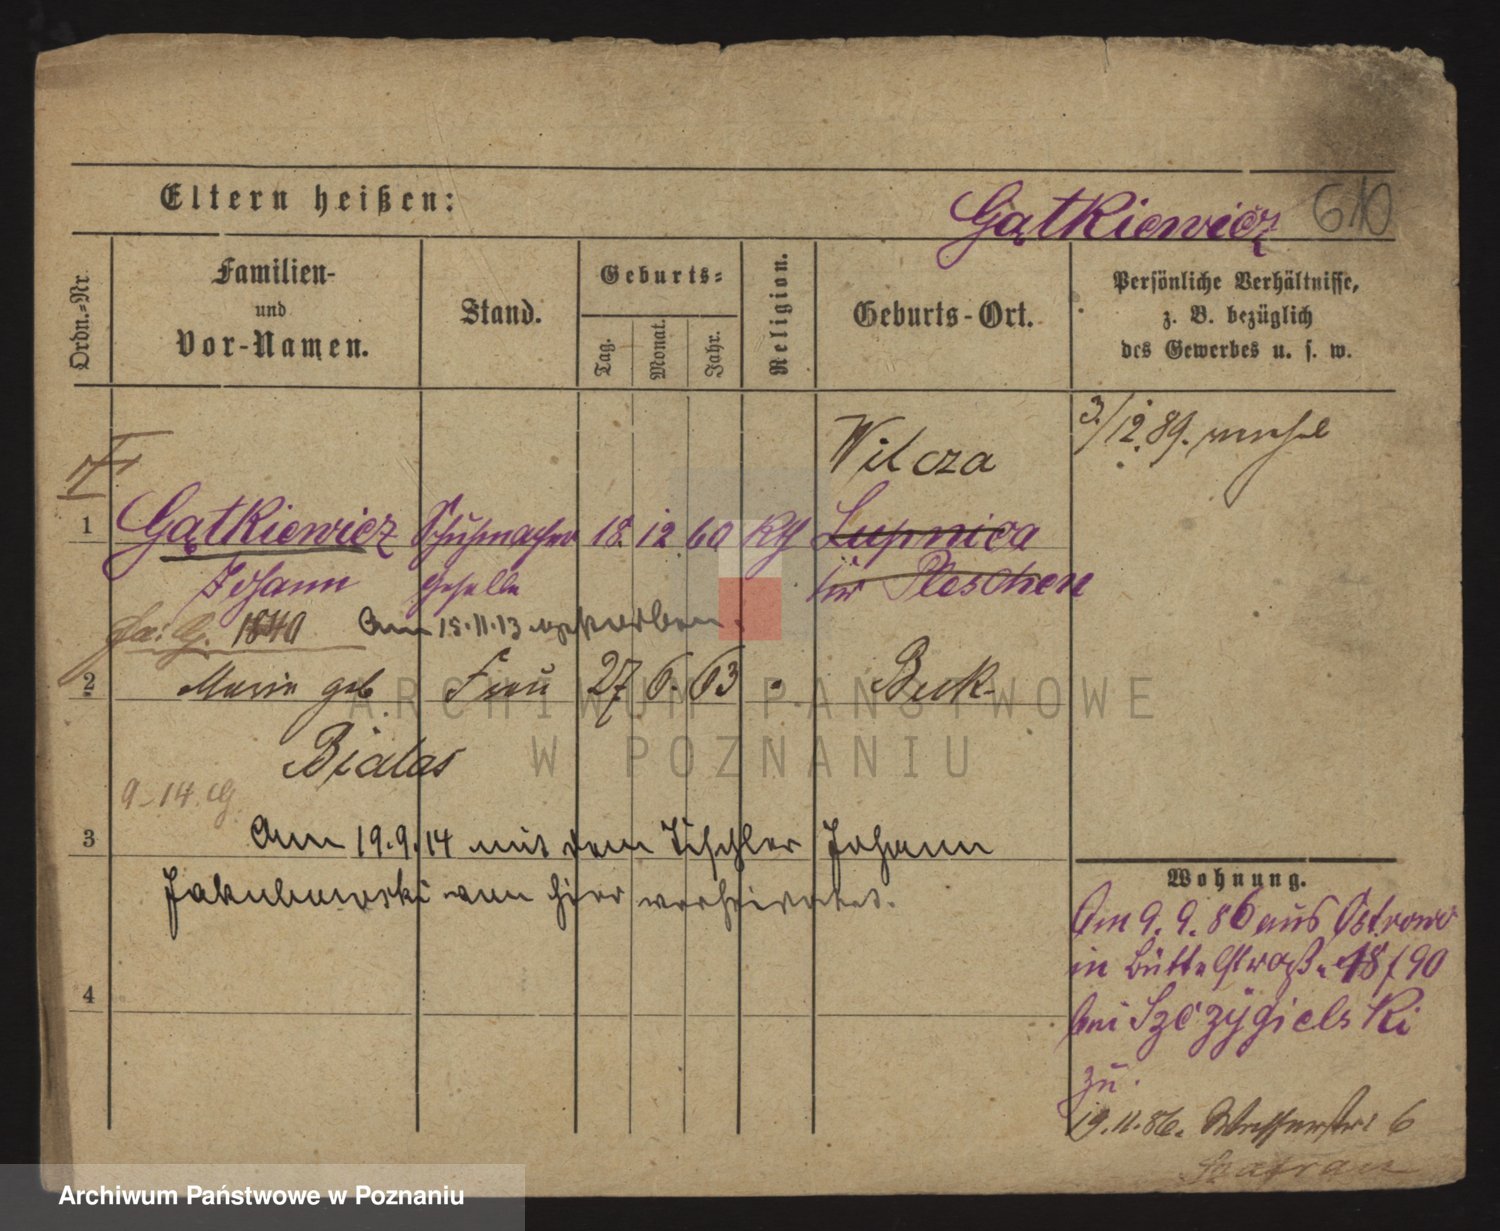 Eltern heißen:
Gątkiewicz 610
Ordn.-Nr.
Familien-
und
Vor-Namen.
Stand.
Geburts=
Tag.
Monat.
Jahr.
Religion.
Geburts-Ort.
Persönliche Verhältnisse,
z. B. bezüglich
des Gewerbes u. s. w.
3./12.89.
Wilcza
1 Gątkiewicz Schuhmacher 18. 12 60 Kth Lupnica
Johann Geselle Pleschen
Am 15.11.13 gestorben.
2 Marie geb. Frau 27 6. 63 Buk
Bialas
9-14
3 Am 19.9.14 mit dem Tischler Johann
Jakubowski von hier verheiratet.
4
Wohnung.
Am 9. 9. 86 aus Ostrowo
in Büttelstraße 18/90
bei Szczygielski
zu.
19.11.86. Wasserstr. 6
ARCHIWUM PAŃSTWOWE
W POZNANIU
Archiwum Państwowe w Poznaniu